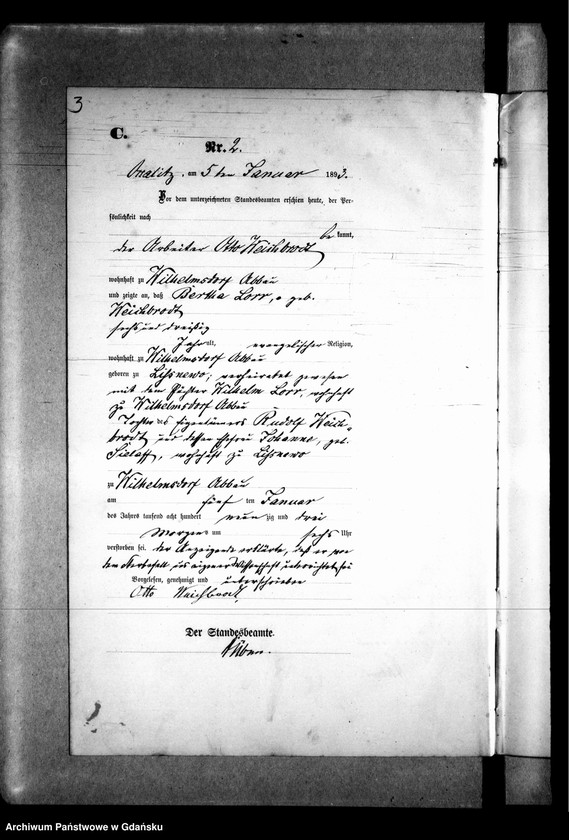 3
C.
Nr. 2.
am 5ten Januar 1893.
Vor dem unterzeichneten Standesbeamten erschien heute, der Per-
sönlichkeit nach
be kannt,
der Arbeiter Otto Weichbrodt
wohnhaft zu Wilhelmsdorf Abbau
und zeigte an, daß Bertha Lorr, geb.
Weichbrodt
sechs und dreißig
Jahr alt, evangelischer Religion,
wohnhaft zu Wilhelmsdorf Abbau
geboren zu Lissnewo, verheirathet gewesen
mit dem Wilhelm Lorr, wohnhaft
zu Wilhelmsdorf Abbau
Tochter des Eigentümers Rudolf Weich-
brodt und dessen Ehefrau Johanne, geb.
wohnhaft zu Lissnewo
zu Wilhelmsdorf Abbau
am fünf ten Januar
des Jahres tausend acht hundert neun zig und drei
Morgens um sechs Uhr
verstorben sei. Der Anzeigende erklärte, daß er von
dem Sterbefall aus eigener Wissenschaft unterrichtet sei
Vorgelesen, genehmigt und unterschrieben
Otto Weichbrodt
Der Standesbeamte.
Archiwum Państwowe w Gdańsku